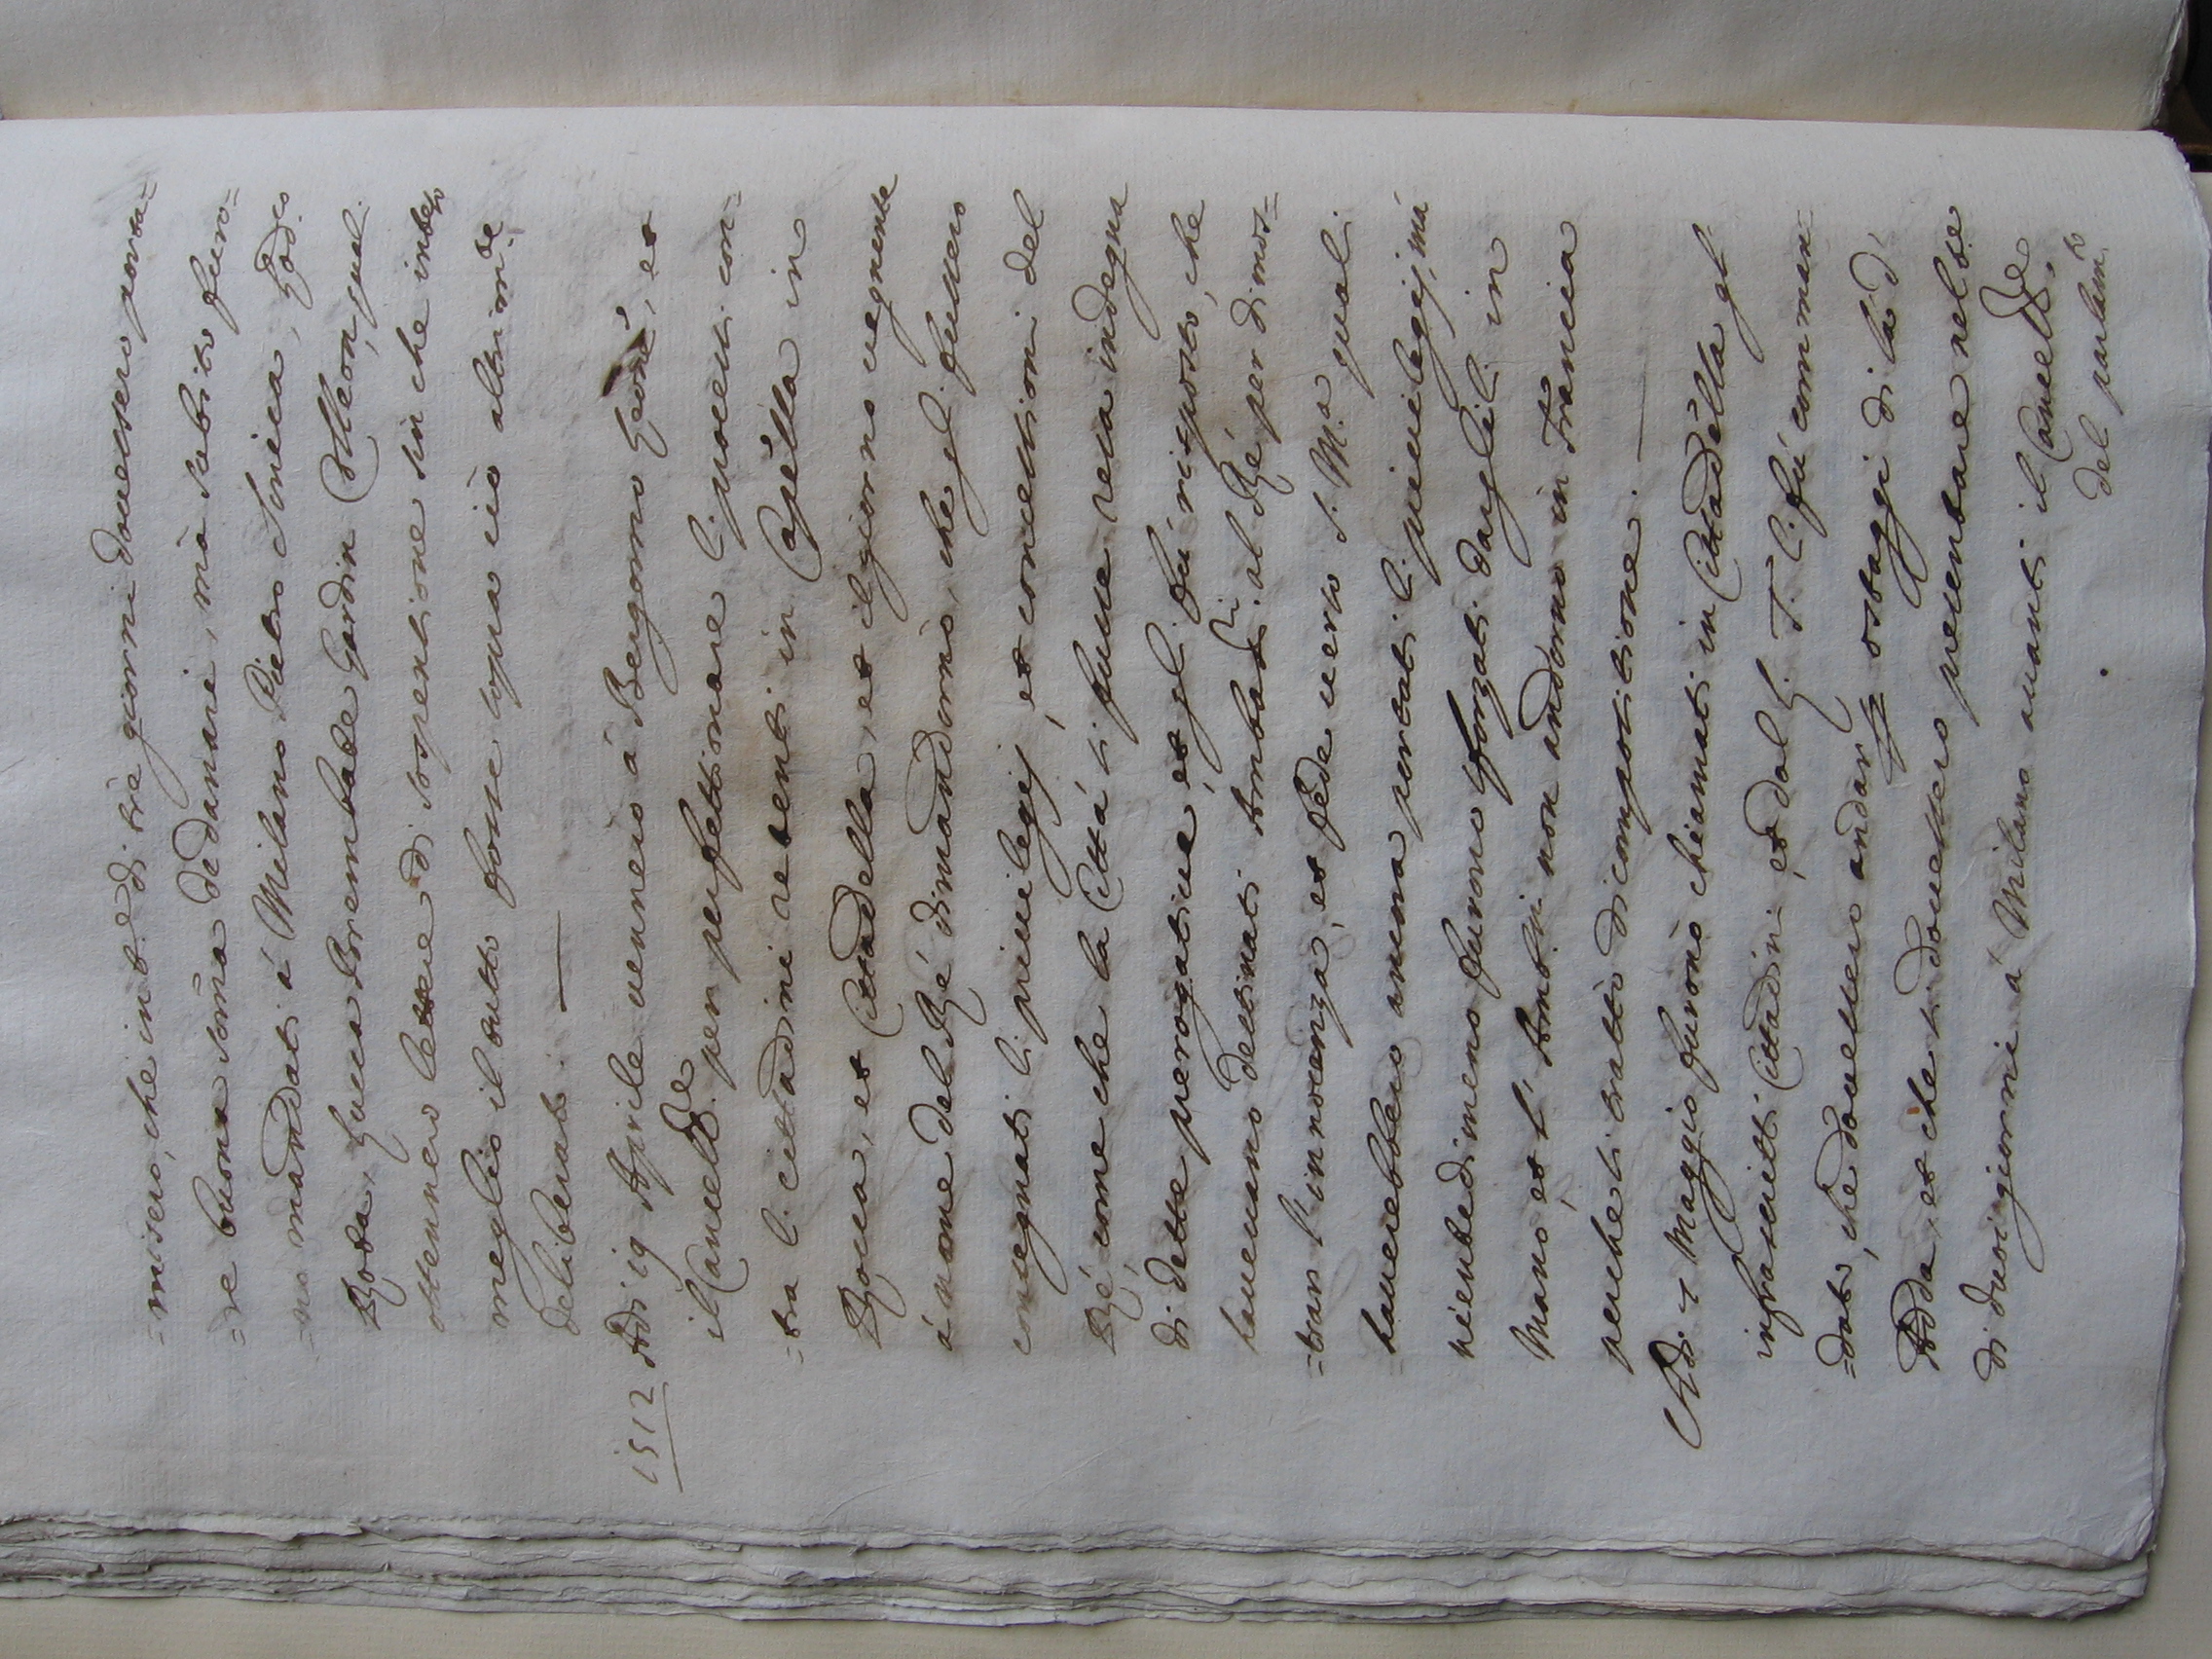 =misero, che in t.e di trè giorni douessero porta=
=re buona som̃a de danari, mà subito furo=
=no mandati á Milano Pietro Soneca,
Rota, Lucca Brembate Gordin Colleon, quali
ottennero lettere di sospensione sin che inteso
meglio il tutto fosse sopra ciò altrim.te
deliberato. —
1512 Adi 19 Aprile uennero á Bergomo et
il Cancell.re per perfettionare li processi con=
=tra li cittadini absenti in Capella in
Rocca, et Cittadella, et il giorno uegnente
á nome del Ré dimandorno, che gli fussero
consegnati li priuilegij, et concessioni del
Ré, come che la Cittá si fusse resa indegna
di dette prerogatiue, et gli fú risposto, che
haueuano destinati Ambad.ri al Ré per dimos=
=trar l'innocenza, et fede uerso S. M.a quali
hauerebbero anco portati li priuilegij, má
nientedimeno furono sforzati dargli li in
Mano, et l' Amb.ri non andorno in Francia
perche si trattò di compositione. —
Adi 7 Maggio furono chiamati in Cittadella gl'
infrascritti Cittadini, et dal S. T. li fú comman=
=dato, che douessero andar p ostaggi di lá d'
Adda, et che si douessero presentare nel te
di duoi giorni á Milano auanti il Cancell.re
del parlam.to